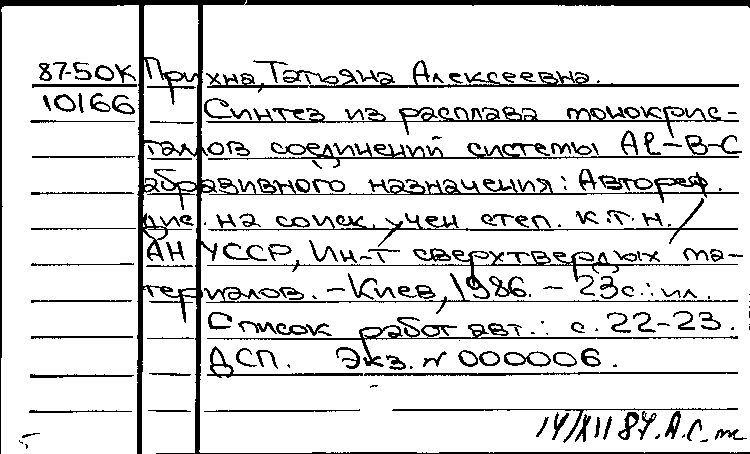 87-50К Прихна, Татьяна Алексеевна.
10166 Синтез из расплава монокрис-
таллов соединений системы Al-B-C
абразивного назначения: Автореф.
дис. на соиск. учен степ. к.т.н. /
АН УССР, Ин-т сверхтвердых ма-
териалов. - Киев, 1986. - 23с.: ил.
Список работ авт.: с. 22-23.
ДСП. Экз. N 000006.